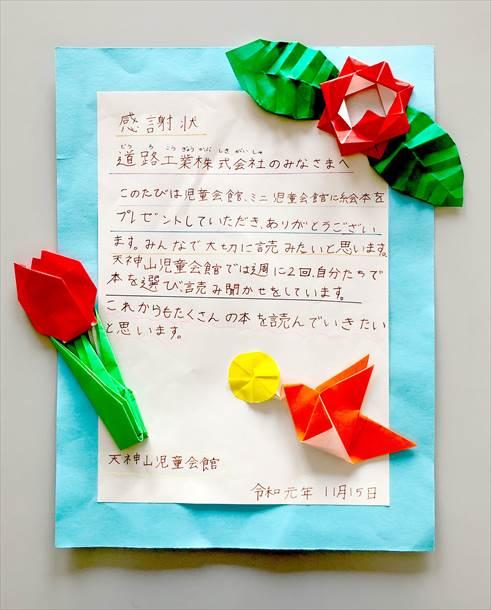 感謝状
どうろこうぎょうかぶしきがいしゃ
道路工業株式会社のみなさまへ
このたびは児童会館、ミニ児童会館に絵本を
プレゼントしていただき、ありがとうござい
ます。みんなで大切に読みたいと思います。
天神山児童会館では週に2回、自分たちで
本を選び読み聞かせをしています。
これからもたくさんの本を読んでいきたい
と思います。
天神山児童会館
令和元年 11月15日